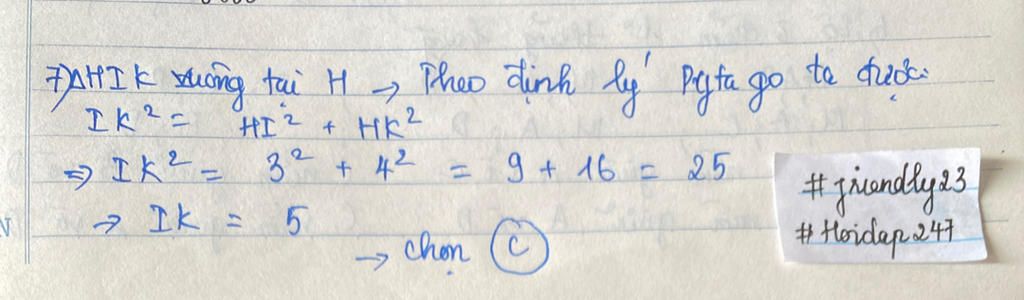 7) ΔHIK vuông tại H → Theo định lý Pytago ta được:
IK² = HI² + HK²
⇒ IK² = 3² + 4² = 9 + 16 = 25
→ IK = 5
→ chọn C
#friendly23
#Hoidap247